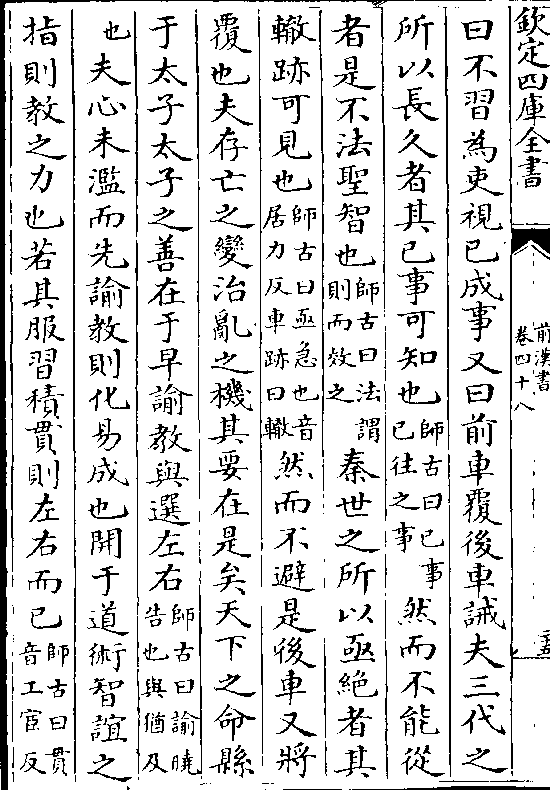 欽定四庫全書
前漢書
卷四十八
二十五
曰不習為吏視已成事又曰前車覆後車誡夫三代之
所以長久者其已事可知也師古曰已事已往之事然而不能從
者是不法聖智也師古曰法謂則而效之秦世之所以亟絶者其
轍跡可見也師古曰亟急也音居力反車跡曰轍然而不避是後車又將
覆也夫存亡之變治亂之機其要在是矣天下之命縣
于太子太子之善在于早諭教與選左右師古曰諭曉告也與猶及
也夫心未濫而先諭教則化易成也開于道術智誼之
指則教之力也若其服習積貫則左右而已師古曰貫音工宦反